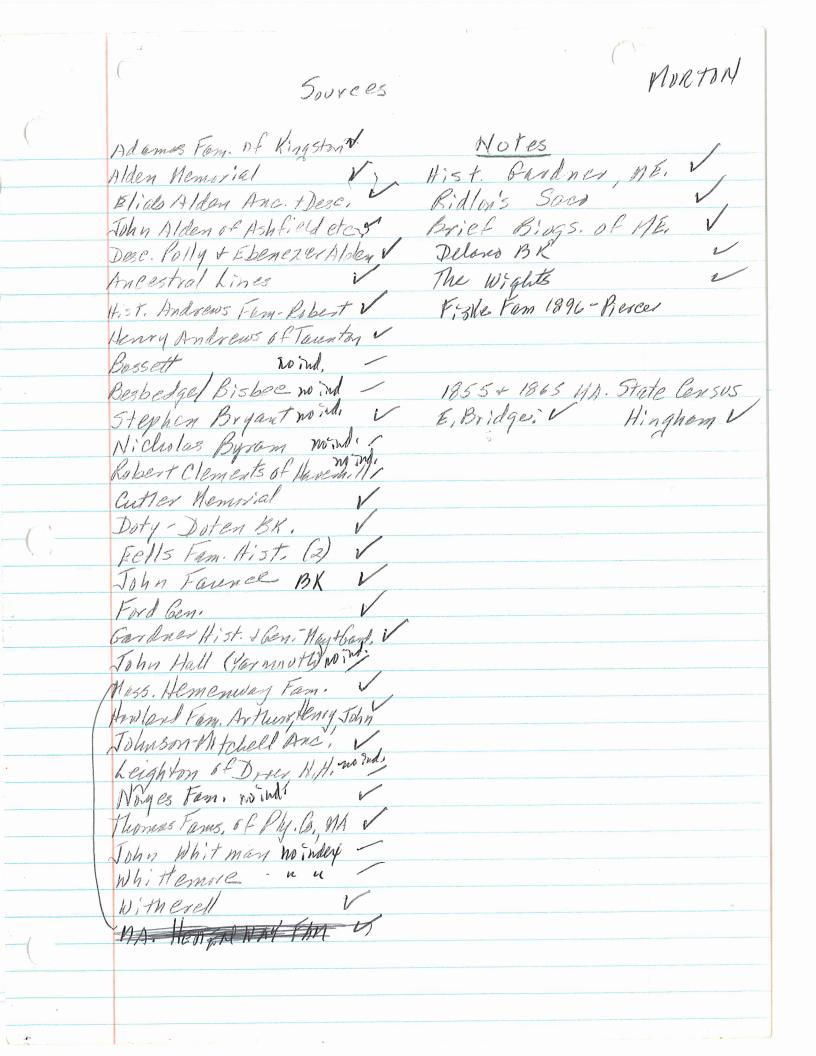 MORTON
Sources
Adams Fam. of Kingston ✓
Alden Memorial ✓
Elias Alden Anc. + Desc. ✓
John Alden of Ashfield etc ✓
Desc. Polly + Ebenezer Alden ✓
Ancestral Lines ✓
Hist. Andrews Fam-Robert ✓
Henry Andrews of Taunton ✓
Bassett no ind. —
Besbedge/Bisbee no ind —
Stephen Bryant no ind. ✓
Nicholas Byram no ind. ✓
Robert Clements of Haverhill no ind.
Cutler Memorial ✓
Doty-Doten BK. ✓
Eells Fam. Hist. (2) ✓
John Faunce BK ✓
Ford Gen. ✓
Gardner Hist. + Gen.- May + Gard. ✓
John Hall (Yarmouth) no ind. —
Mass. Hemenway Fam. ✓
Howland Fam. Arthur, Henry, John ✓
Johnson-Mitchell Anc. ✓
Leighton of Dover, N.H. no ind. —
Noyes Fam. no ind. ✓
Thomas Fams. of Ply. Co, MA ✓
John Whitman no index —
Whittemore - " " —
Witherell ✓
MA. Hemenway Fam ✓
Notes
Hist. Gardner, ME. ✓
Ridlon's Saco ✓
Brief Biogs. of ME. ✓
Delano BK ✓
The Wights ✓
Fiske Fam 1896-Pierces
1855 + 1865 MA. State Census
E, Bridge: ✓ Hingham ✓